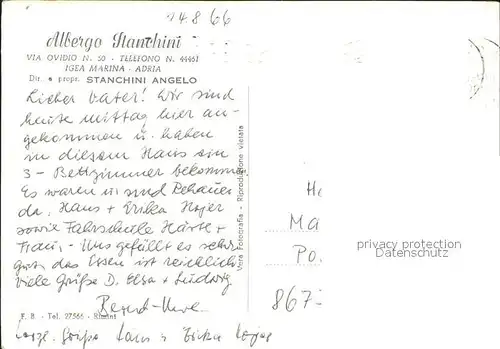 14 8 66
Albergo Stanchini
VIA OVIDIO N. 50 - TELEFONO N. 44461
IGEA MARINA - ADRIA
Dir. e propr. STANCHINI ANGELO
Lieber Vater! Wir sind
heute mittag hier an-
gekommen u. haben
in diesem Haus ein
3-Bettzimmer bekommen.
Es waren u. sind Bekannte
da, Haus + Erika
sowie Fahrschule
Frau. - Uns gefällt es sehr
gut, das Essen ist reichlich
Viele Grüße D. Elsa + Ludwig
Bernd-Uwe
F. B. - Tel. 27566 - Rimini
Grüße Hans + Erika
Vera Fotografia - Riproduzione vietata
He
Ma
Po
867
privacy protection
Datenschutz